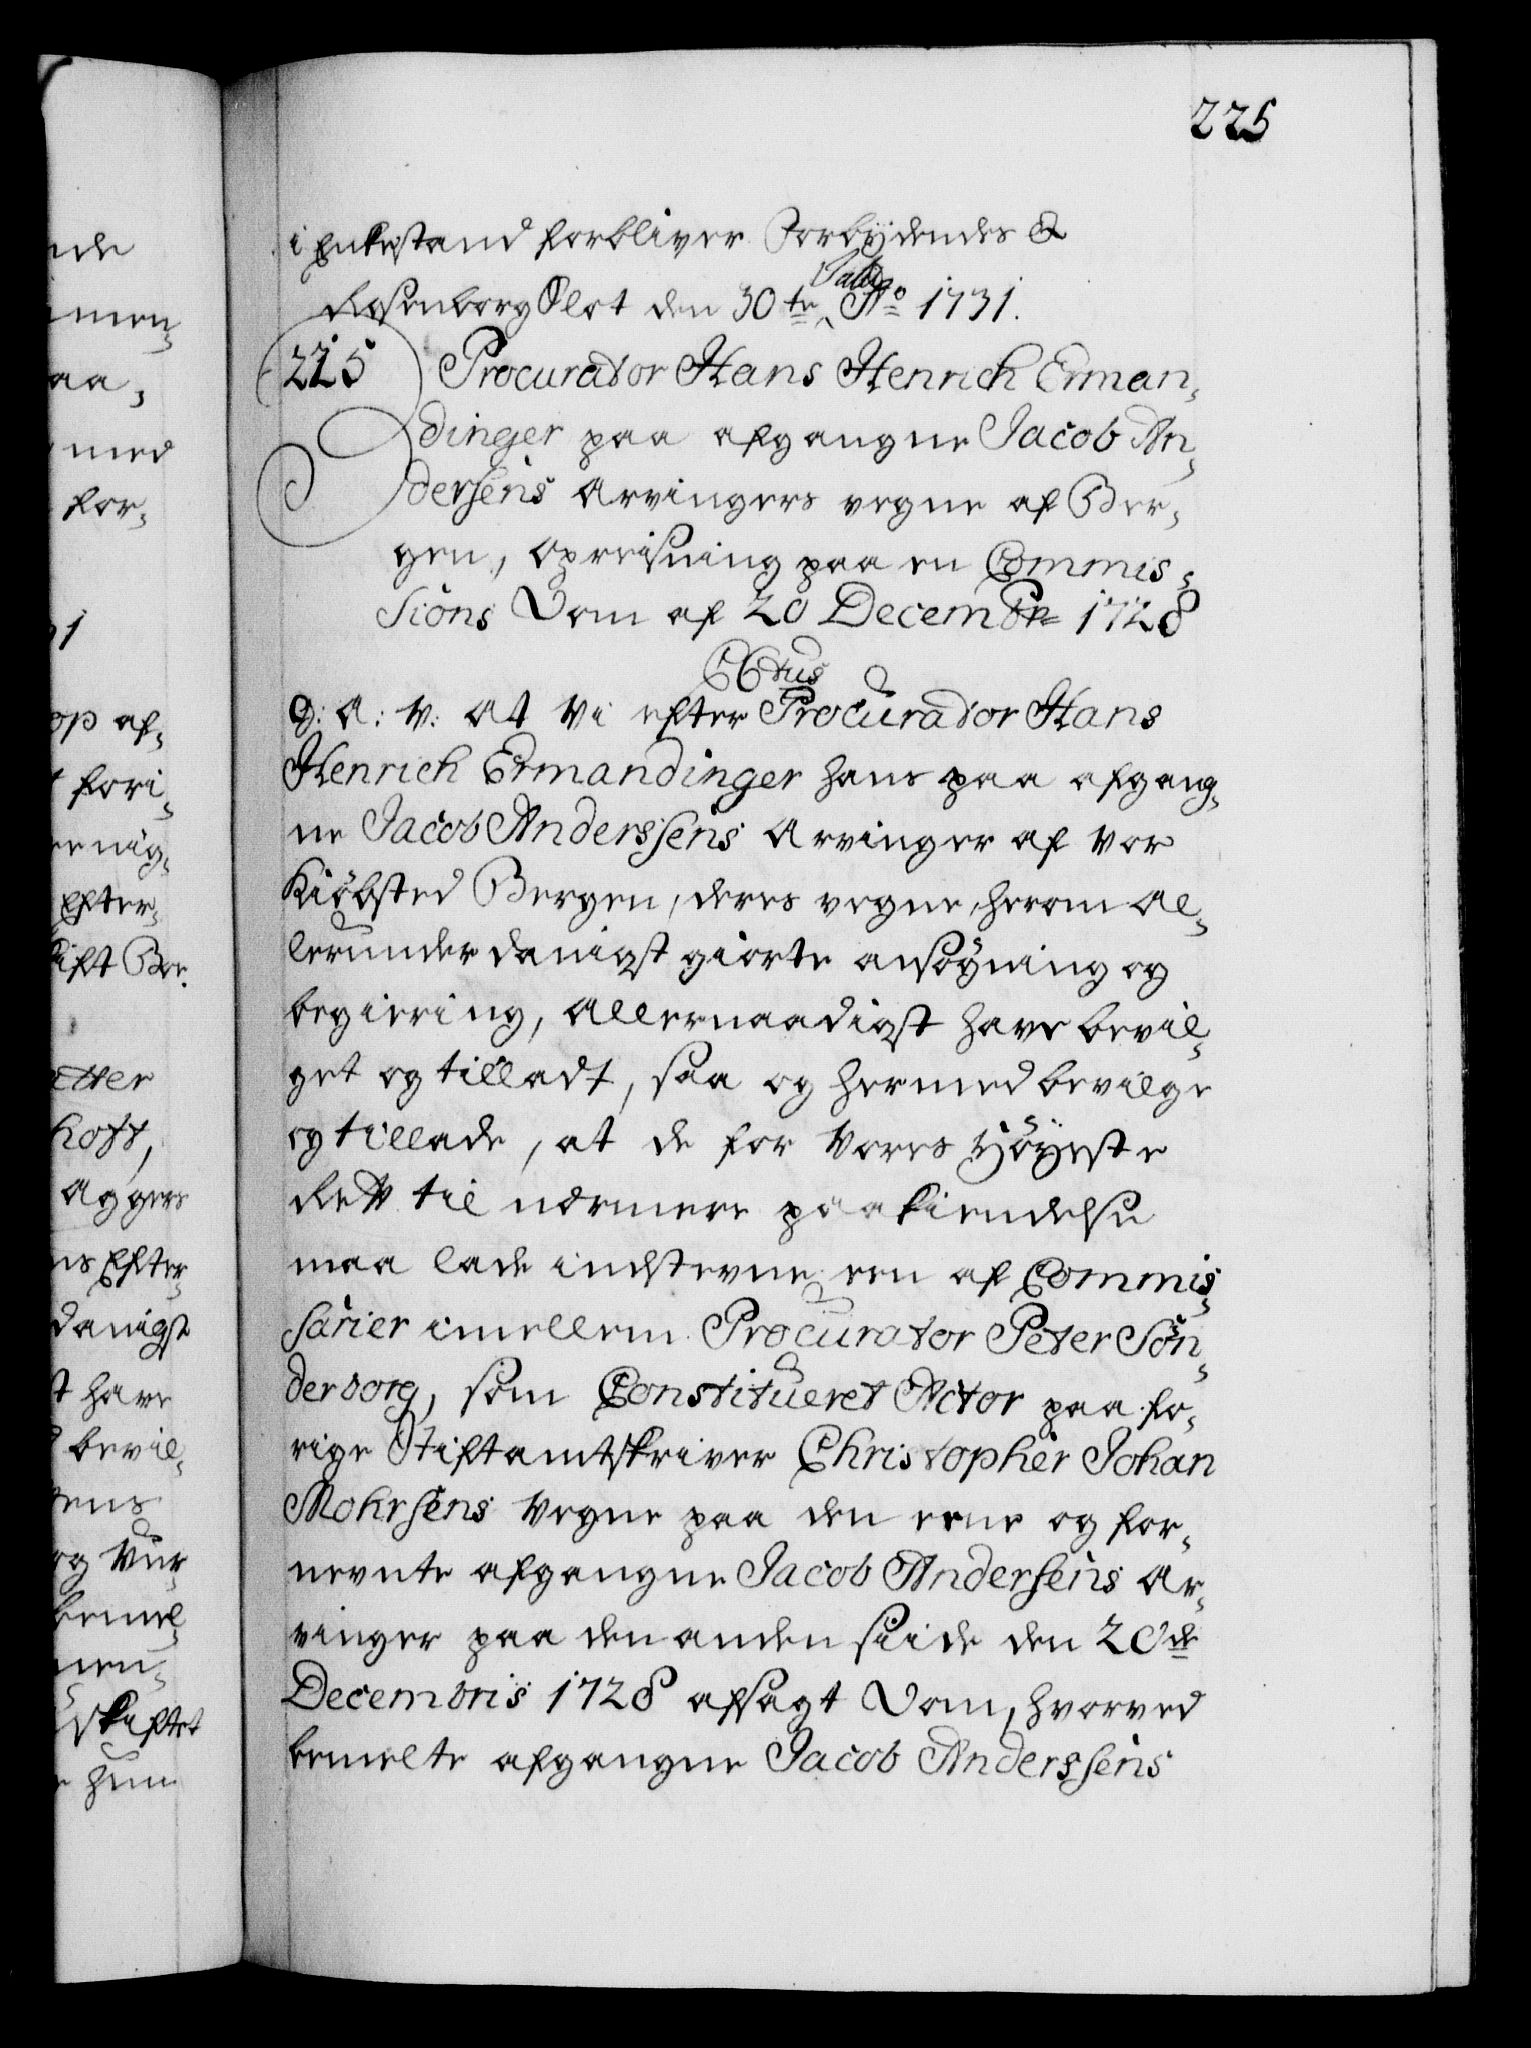 225
i Enkestand forbliver Forbydendes &
Rosenborg Slot den 30te Julij Ao 1731.
225 Procurator Hans Henrich Erman-
dinger paa afgangne Jacob An-
dersens Arvingers vegne af Ber-
gen, opreisning paa en Commis-
sions Dom af 20 Decembr 1728
CCtus
G: A: V: At Vi efter Procurator Hans
Henrich Ermandinger hans paa afgang-
ne Jacob Anderssens Arvinger af Vor
Kiöbsted Bergen, deres vegne, herom Al-
lerunderdanigst giorte ansøgning og
begiering, Allernaadigst have bevil-
get og tilladt, saa og hermed bevilge
og tillade, at de for Vores Höyeste
Rett til nærmere paakiendelse
maa lade indstevne een af Commis-
sarier imellem Procurator Peter Sön-
derborg, som Constitueret Actor paa fo-
rige Stiftamtskriver Christopher Johan
Mohrsens Vegne paa den eene og for-
nevnte afgangne Jacob Andersens Ar-
vinger paa den anden siide den 20de
Decembris 1728 afsagt Dom, hvorved
bemelte afgangne Jacob Anderssens
nde
men-
aa,
med
for-
op af-
fori-
ening-
Efter-
ift Ber.
etter
hoff,
Aggers
ns Efter-
danigst
t have
bevil-
gens
og Vur-
bemel-
men-
udskiftet
hun